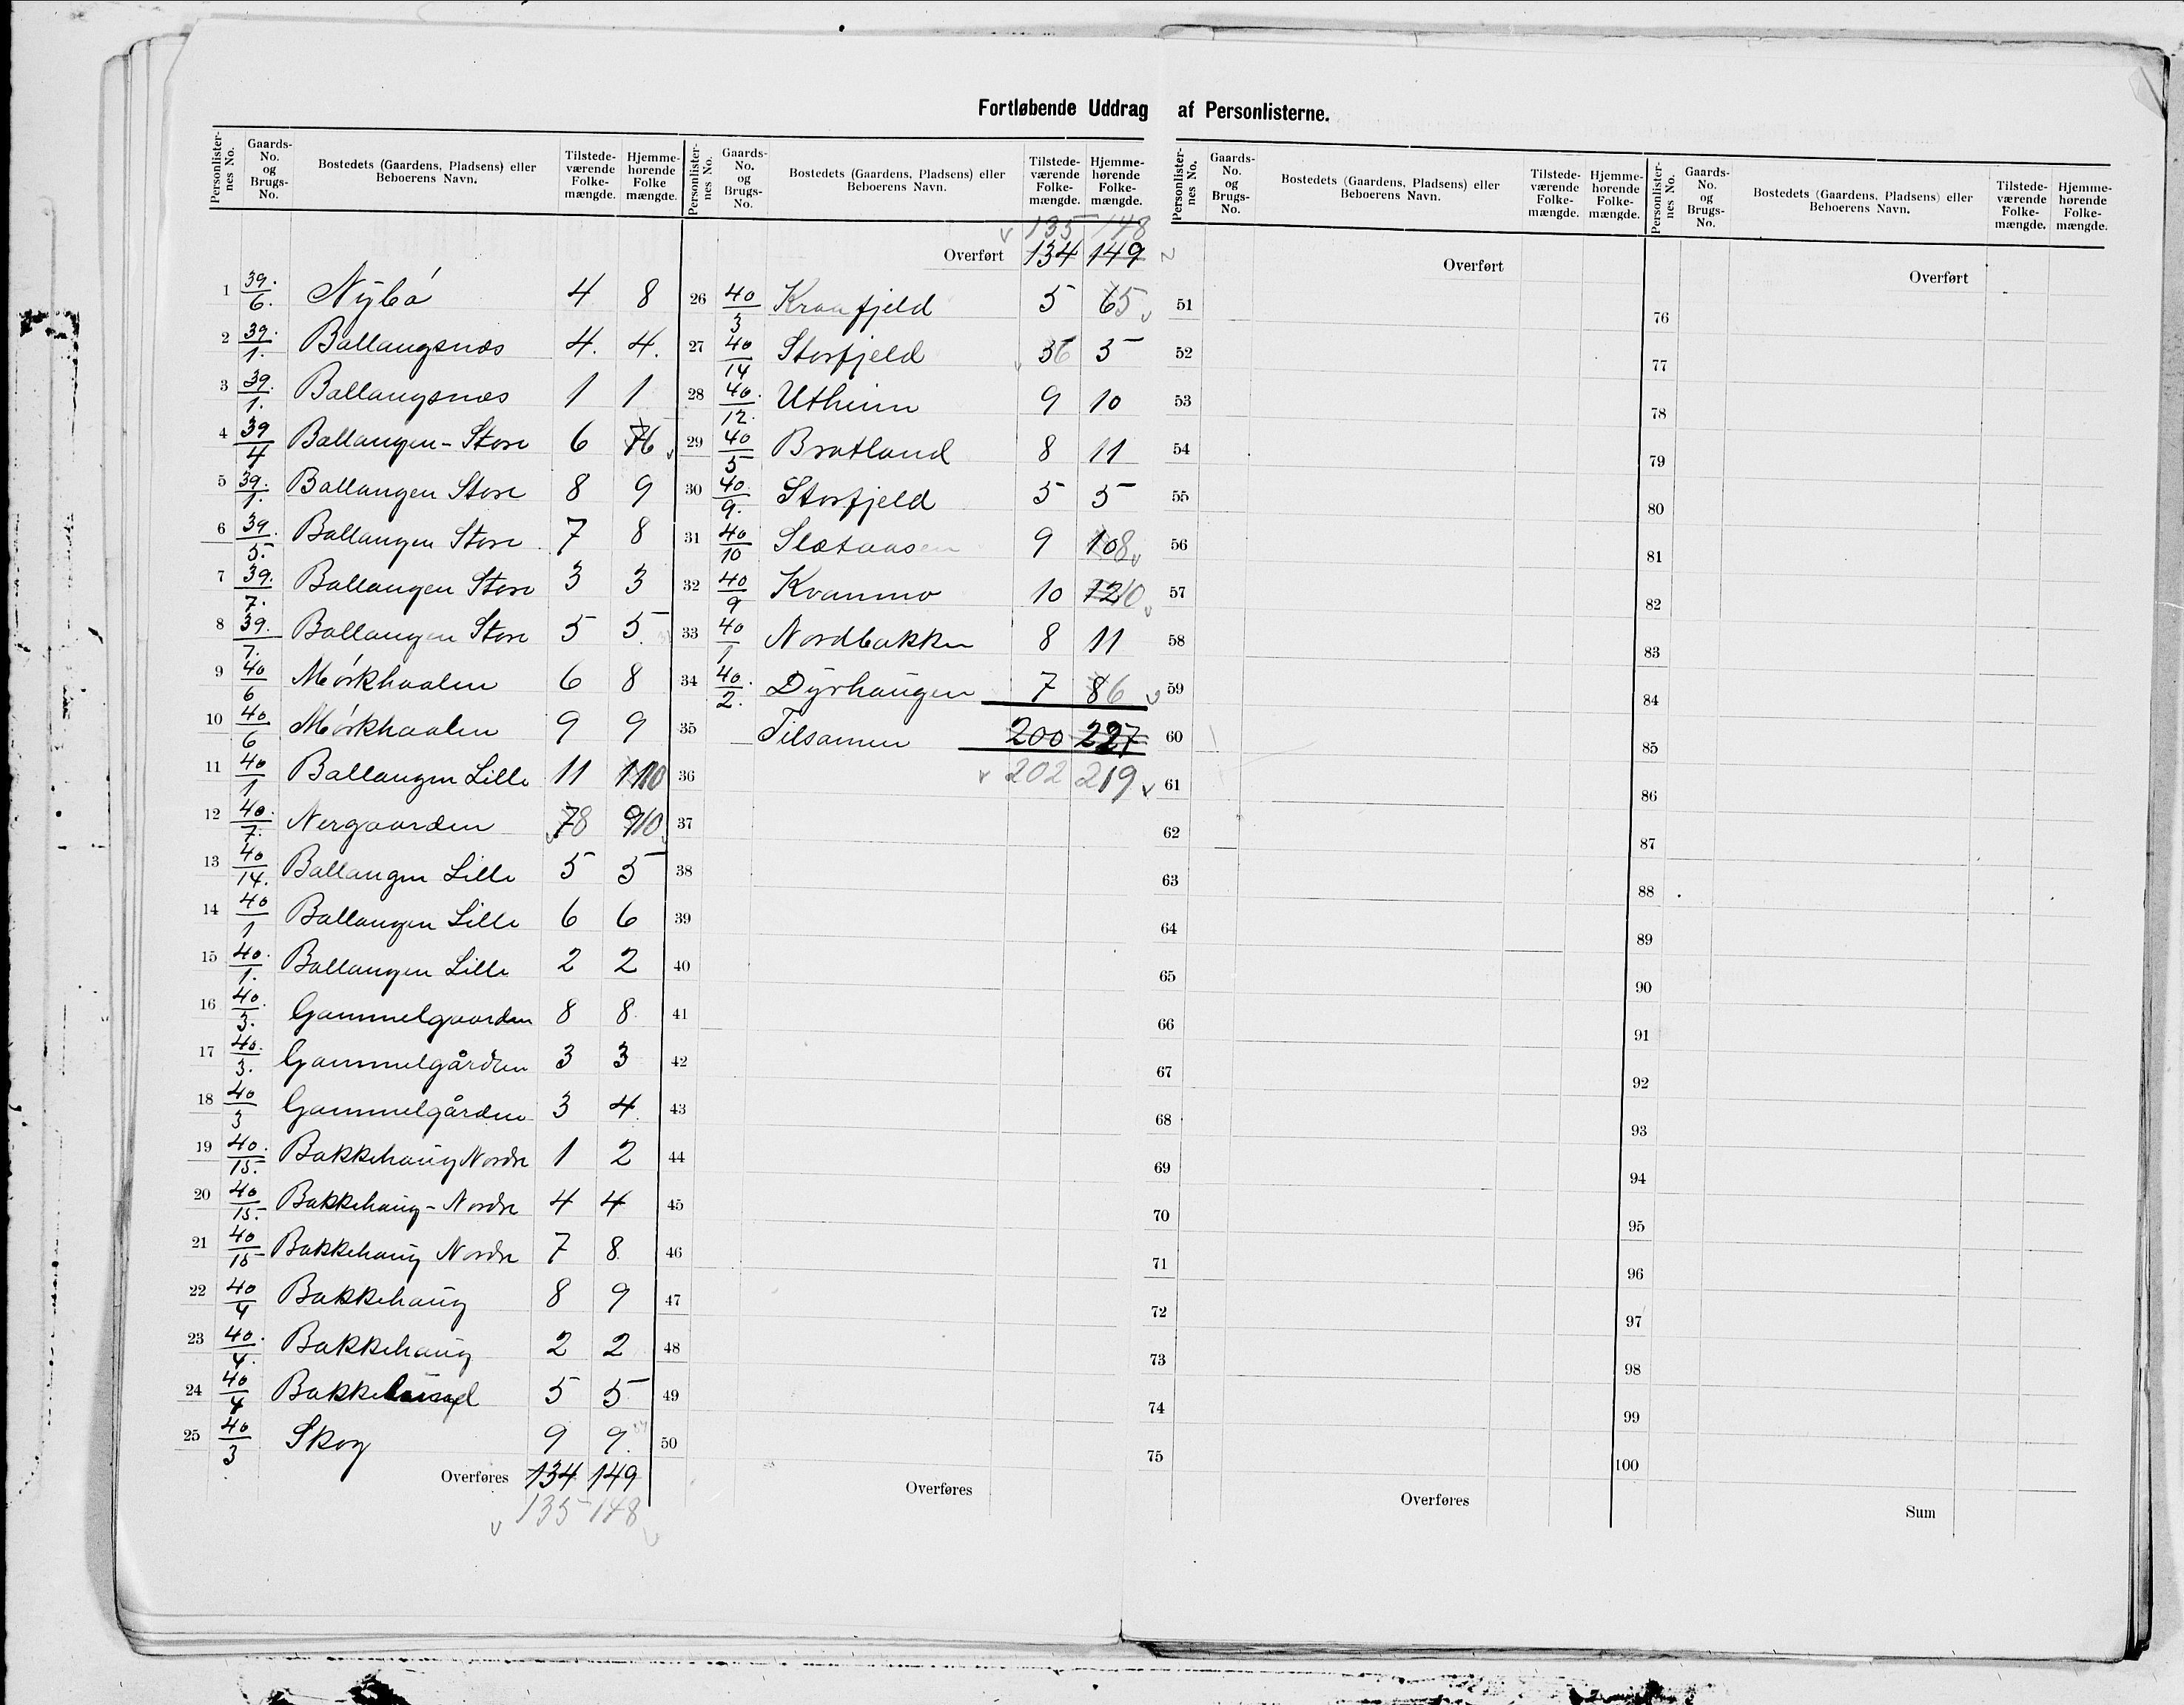 Fortløbende Uddrag af Personlisterne.
Personlisternes No. Gaards-No. og Brugs-No. Bostedets (Gaardens, Pladsens) eller Beboerens Navn. Tilstedeværende Folkemængde. Hjemmehørende Folkemængde.
1 39./6. Nybö 4 8
2 39./1. Ballangsnæs 4. 4.
3 39./1. Ballangsnæs 1 1
4 39/4 Ballangen-Store 6 7 6
5 39./1. Ballangen Store 8 9
6 39./5. Ballangen Store 7 8
7 39./7. Ballangen Store 3 3
8 39./7. Ballangen Store 5 5
9 40/6 Mörkhaalen 6 8
10 40/6 Mörkhaalen 9 9
11 40/1 Ballangen Lille 11 11 10
12 40./7. Nergaarden 7 8 9 10
13 40/14. Ballangen Lille 5 5
14 40/1 Ballangen Lille 6 6
15 40./1. Ballangen Lille 2 2
16 40./3. Gammelgaarden 8 8
17 40./3. Gammelgården 3 3
18 40/3 Gammelgården 3 4
19 40./15. Bakkehaug Nordre 1 2
20 40/15. Bakkehaug-Nordre 4 4
21 40/15 Bakkehaug Nordre 7 8
22 40/4 Bakkehaug 8 9
23 40./4. Bakkehaug 2 2
24 40/4 Bakkelund 5 5
25 40/3 Skog 9 9
Overføres 134 149
135 148
Personlisternes No. Gaards-No. og Brugs-No. Bostedets (Gaardens, Pladsens) eller Beboerens Navn. Tilstedeværende Folkemængde. Hjemmehørende Folkemængde.
135 148
Overført 134 149
26 40/3 Kraafjeld 5 6 5
27 40/14 Storfjeld 5 6 5
28 40./12. Utheim 9 10
29 40/5 Bratland 8 11
30 40./9. Storfjeld 5 5
31 40/10 Sletaasen 9 10 8
32 40/9 Kvanmo 10 12 10
33 40/1 Nordbakken 8 11
34 40./2. Dyrhaugen 7 8 6
35 Tilsamen 200 227
36 202 219
37
38
39
40
41
42
43
44
45
46
47
48
49
50
Overføres
Personlisternes No. Gaards-No. og Brugs-No. Bostedets (Gaardens, Pladsens) eller Beboerens Navn. Tilstedeværende Folkemængde. Hjemmehørende Folkemængde.
Overført
51
52
53
54
55
56
57
58
59
60
61
62
63
64
65
66
67
68
69
70
71
72
73
74
75
Overføres
Personlisternes No. Gaards-No. og Brugs-No. Bostedets (Gaardens, Pladsens) eller Beboerens Navn. Tilstedeværende Folkemængde. Hjemmehørende Folkemængde.
Overført
76
77
78
79
80
81
82
83
84
85
86
87
88
89
90
91
92
93
94
95
96
97
98
99
100
Sum